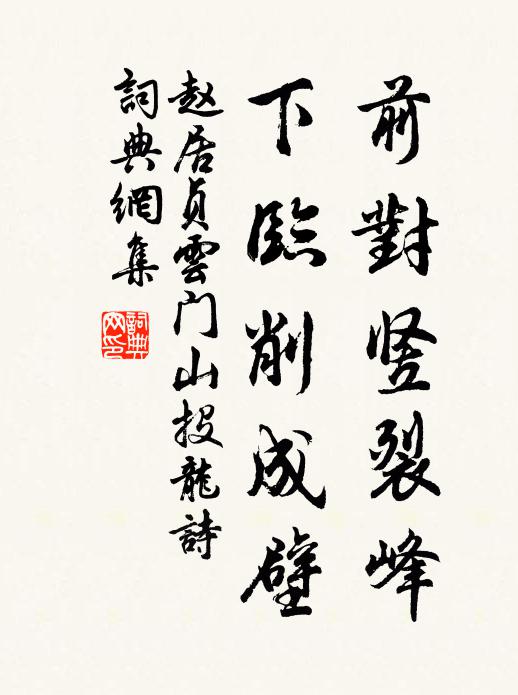 前對竖裂峰
下臨削成壁
赵居貞雲门山投龍詩
詞典網集
詞典
网印